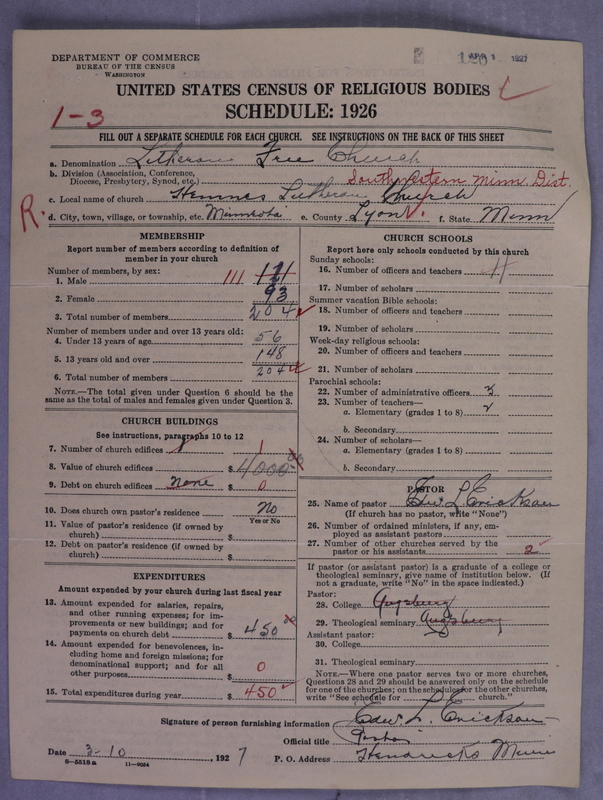 DEPARTMENT OF COMMERCE
BUREAU OF THE CENSUS
WASHINGTON
APR 1 1927
UNITED STATES CENSUS OF RELIGIOUS BODIES
1-3
SCHEDULE: 1926
FILL OUT A SEPARATE SCHEDULE FOR EACH CHURCH. SEE INSTRUCTIONS ON THE BACK OF THIS SHEET
a. Denomination Lutheran Free Church
b. Division (Association, Conference,
Diocese, Presbytery, Synod, etc.) Southwestern Minn. Dist.
c. Local name of church Hemnes Lutheran Church
R. d. City, town, village, or township, etc. Minneota e. County Lyon f. State Minn
MEMBERSHIP
Report number of members according to definition of
member in your church
Number of members, by sex:
1. Male 111 121
2. Female 93
3. Total number of members 204
Number of members under and over 13 years old:
4. Under 13 years of age 56
5. 13 years old and over 148
6. Total number of members 204
NOTE.—The total given under Question 6 should be the
same as the total of males and females given under Question 3.
CHURCH BUILDINGS
See instructions, paragraphs 10 to 12
7. Number of church edifices 1
8. Value of church edifices $ 4000.00
9. Debt on church edifices none $ 0
10. Does church own pastor's residence No
Yes or No
11. Value of pastor's residence (if owned by
church) $
12. Debt on pastor's residence (if owned by
church) $
EXPENDITURES
Amount expended by your church during last fiscal year
13. Amount expended for salaries, repairs,
and other running expenses; for im-
provements or new buildings; and for
payments on church debt $ 450 00
14. Amount expended for benevolences, in-
cluding home and foreign missions; for
denominational support; and for all
other purposes $ 0
15. Total expenditures during year $ 450
CHURCH SCHOOLS
Report here only schools conducted by this church
Sunday schools:
16. Number of officers and teachers 4
17. Number of scholars
Summer vacation Bible schools:
18. Number of officers and teachers
19. Number of scholars
Week-day religious schools:
20. Number of officers and teachers
21. Number of scholars
Parochial schools:
22. Number of administrative officers 3
23. Number of teachers—
a. Elementary (grades 1 to 8) 2
b. Secondary
24. Number of scholars—
a. Elementary (grades 1 to 8)
b. Secondary
PASTOR
25. Name of pastor Edw. L. Erickson
(If church has no pastor, write "None")
26. Number of ordained ministers, if any, em-
ployed as assistant pastors
27. Number of other churches served by the
pastor or his assistants 2
If pastor (or assistant pastor) is a graduate of a college or
theological seminary, give name of institution below. (If
not a graduate, write "No" in the space indicated.)
Pastor:
28. College Augsburg
29. Theological seminary Augsburg
Assistant pastor:
30. College
31. Theological seminary
NOTE.—Where one pastor serves two or more churches,
Questions 28 and 29 should be answered only on the schedule
for one of the churches; on the schedules for the other churches,
write "See schedule for church."
Signature of person furnishing information Edw. L. Erickson
Official title Pastor
Date 3-10 1927 P. O. Address Hendricks Minn
8-5518a 11-9054